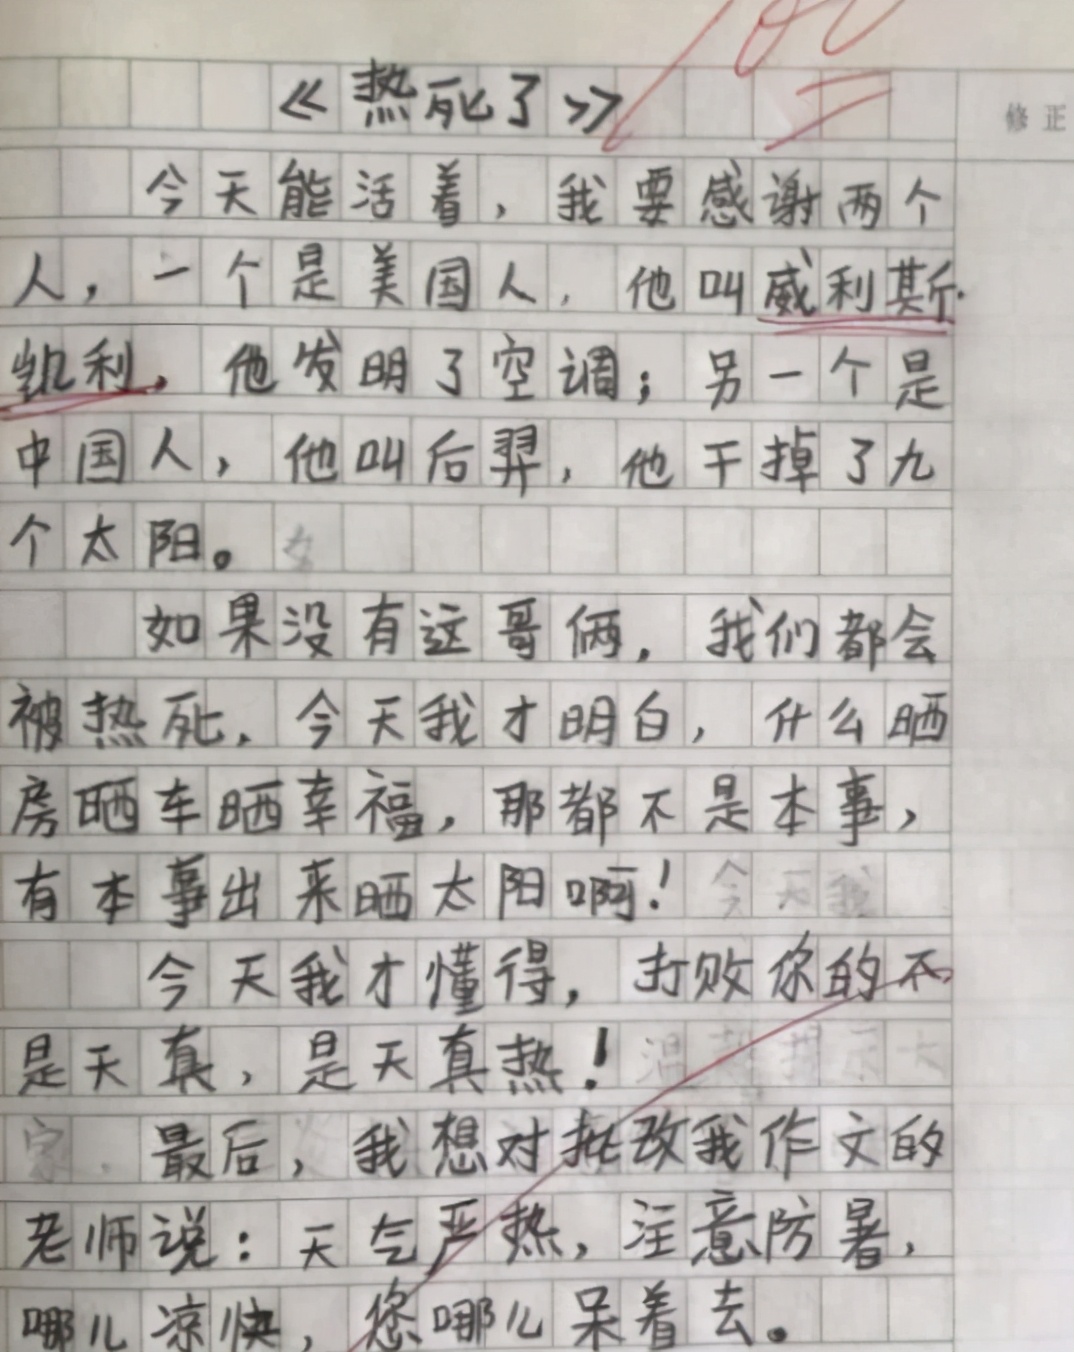 100
《热死了》
修正
今天能活着，我要感谢两个
人，一个是美国人，他叫威利斯·
凯利，他发明了空调；另一个是
中国人，他叫后羿，他干掉了九
个太阳。
如果没有这哥俩，我们都会
被热死，今天我才明白，什么晒
房晒车晒幸福，那都不是本事，
有本事出来晒太阳啊！
今天我才懂得，打败你的不
是天真，是天真热！
最后，我想对批改我作文的
老师说：天气严热，注意防暑，
哪儿凉快，您哪儿呆着去。